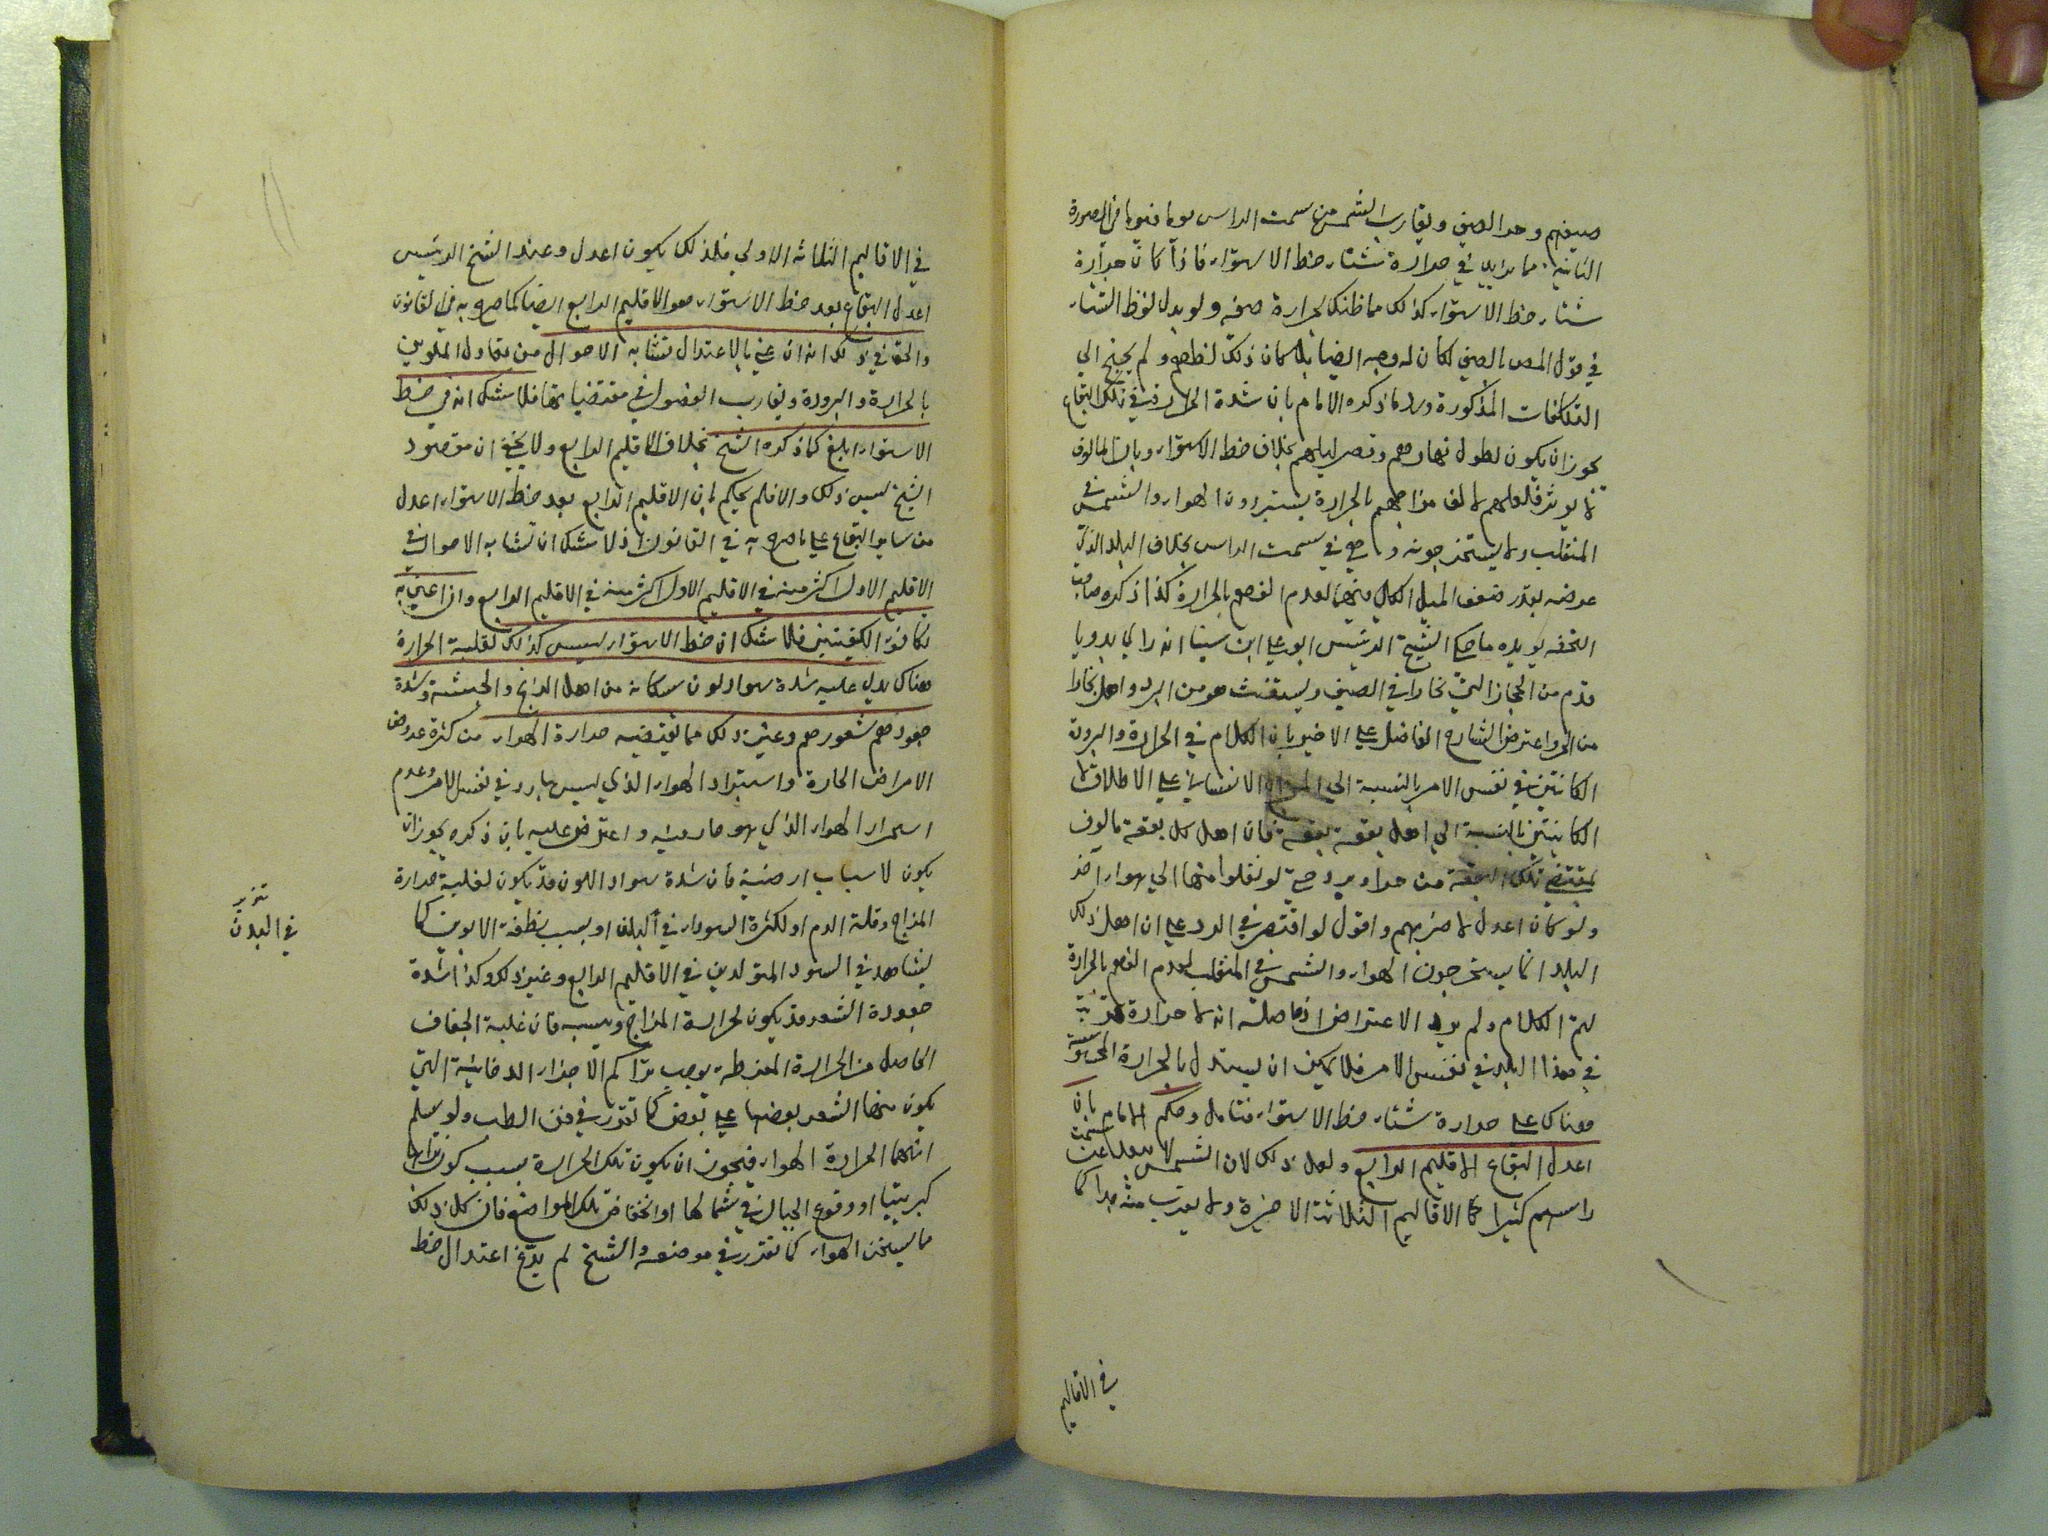 صيفهم وحر الصيف وتقارب الشمس من سمت الراس يوما فيوما في الصورة
الثانية مما يرابي في حرارة شتاء خط الاستواء فاذا كان حرارة
شتاء خط الاستواء كذلك مما ظنك بحرارة صيفه ولو بدل لفظ الشتاء
في قول المص بالصيف لكان له وجه ايضا بل كان ذلك اظهر ولم يحتج الي
التكلفات المذكورة ورد ما ذكره الامام بان شدة الحرارة في تلك البقاع
يجوز ان يكون لطول نهارهم وقصر ليلهم بخلاف خط الاستواء وبان المالوف
لا يوثر فلعلهم لالف مزاجهم بالحرارة يستبردون الهواء والشمس في
المنقلب ولا يستحرجونه وهي في سمت الراس بخلاف البلد الذي
عرضه بقدر ضعف الميل الكلي منها لعدم الفهم بالحرارة كذا ذكره صاحب
التحفه يويده ما حكي الشيخ الرئيس ابو علي ابن سينا انه راي بدويا
قدم من الحجاز الي بخارا في الصيف ويستغث هو من البرد واهل بخارا
من الحر واعترض الشارح الفاضل علي الاخير بان الكلام في الحرارة والبرودة
الكائنتين في نفس الامر بالنسبة الي المزاج الانساني علي الاطلاق لا
الكائنتين بالنسبة الي اهل بقعة بقعة فان اهل كل بقعة مالوف
بمقتضي تلك البقعة من حر او برد حتي لو نقلوا منها الي هواء آخر
ولو كان اعدل لاضر بهم واقول لو اقتصر في الرد علي ان اهل ذلك
البلد انما يستحرجون الهواء والشمس في المنقلب لعدم الفهم بالحرارة
لتم الكلام ولم يرد الاعتراض اذ حاصله انه لا حرارة قوية
في هذا البلد في نفس الامر فلا يمكن ان يستدل بالحرارة المحسوسة
هناك علي حرارة شتاء خط الاستواء فتامل وحكم الامام بان
اعدل البقاع الاقليم الرابع ولعل ذلك لان الشمس لا يبعد عن سمت
راسهم كثيرا كما الاقاليم الثلاثة الاخيرة ولا يقرب منه جدا كما
في الاقاليم
في الاقاليم الثلاثه الاولي فلذلك يكون اعدل وعند الشيخ الرئيس
اعدل البقاع بعد خط الاستواء هو الاقليم الرابع ايضا كما صرح به في القانون
والحق في ذلك انه ان عني بالاعتدال تشابه الاحوال من تعاول الملوين
بالحرارة والبرودة وتقارب الفصول في مقتضياتها فلا شك انه في خط
الاستواء ابلغ كما ذكره الشيخ بخلاف الاقليم الرابع ولا يخفي ان مقصود
الشيخ ليس ذلك والا فلم يحكم بان الاقليم الرابع بعد خط الاستواء اعدل
من ساير البقاع علي ما صرح به في القانون اذ لا شك ان تشابه الاحوال في
الاقليم الاول اكثر منه في الاقليم الاول اكثر منه في الاقليم الرابع وان اعني به
تكافؤ الكيفيتين فلا شك ان خط الاستواء ليس كذلك لغلبة الحرارة
هناك يدل عليه شدة سواد لون سكانه من اهل الزنج والحبشة وشدة
جعود هم شعورهم وغير ذلك مما يقتضيه حرارة الهواء من كثرة عروض
الامراض الحارة واستبراد الهواء الذي ليس ببارد في نفس الامر وعدم
استحرار الهواء الذي هو حار فيه واعترض عليه بان ذكره يجوز ان
يكون لاسباب ارضية فان شدة سواد اللون قد يكون لغلبة حرارة
المزاج وقلة الدم او لكثرة السودا في البلغا او بسبب نطفة الابوين كما
يشاهد في السود المتولدين في الاقليم الرابع وغير ذلك وكذا شدة
جعودة الشعر قد يكون لحرارة المزاج ويبسه فان غلبة الجفاف
الحاصل من الحرارة المفرطه يوجب تراكم الاجزاء الدخانية التي
يكون منها الشعر بعضها علي بعض كما تقرر في فن الطب ولو سلم
انهما لحرارة الهواء فيجوز ان يكون تلك الحرارة بسبب كون ترابها
كبريتيا او وقوع الجبال في شمالها او انخفاض تلك المواضع فان كل ذلك
مما يسخن الهواء كما تقرر في موضعه والشيخ لم يدع اعتدال خط
في البدن